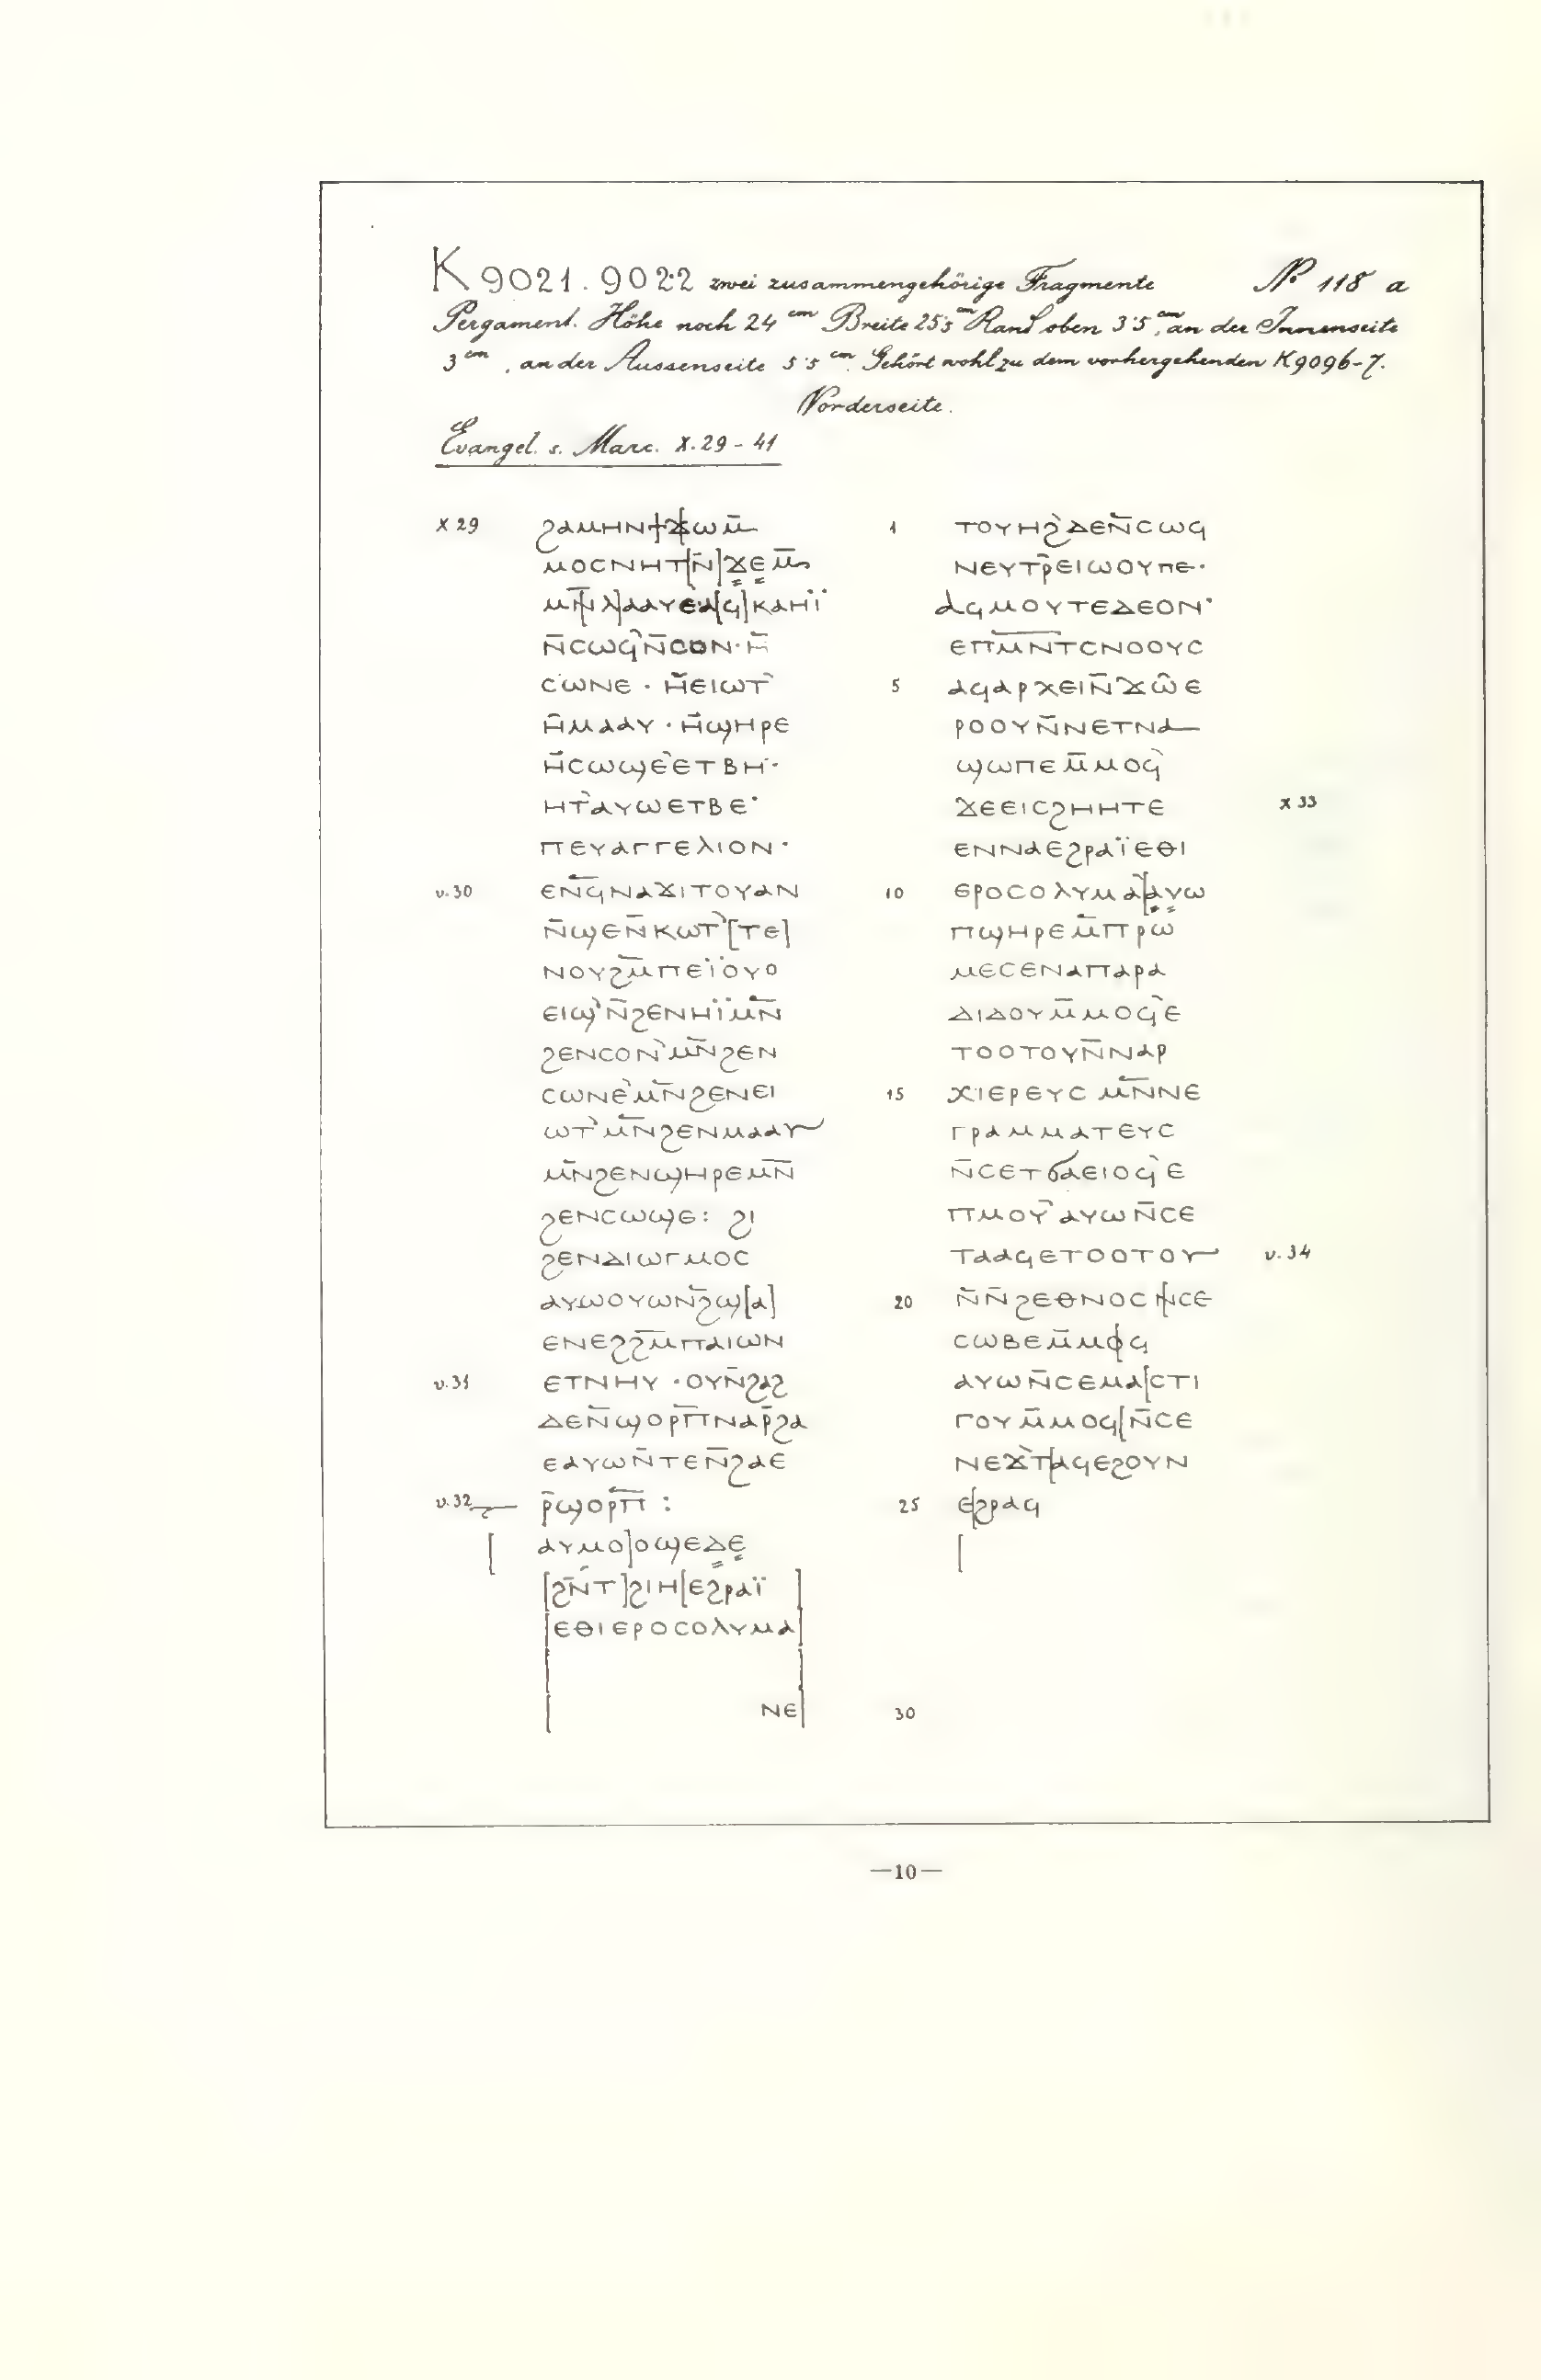 K 9021. 9022 zwei zusammengehörige Fragmente № 118 a
Pergament. Höhe noch 24 cm Breite 25·5 cm Rand oben 3·5 cm, an der Innenseite
3 cm, an der Aussenseite 5·5 cm. Gehört wohl zu dem vorhergehenden K 9096-7.
Vorderseite.
Evangel. s. Marc. X. 29 - 41
X 29 ϩⲁⲙⲏⲛϯϫⲱⲙ̄
ⲙⲟⲥⲛⲏⲧ[ⲛ̄]ϫ̣ⲉ̣ⲙ̄
ⲙⲛ̄ⲗ]ⲁⲁⲩⲉⲁ[ϥ]ⲕⲁⲏⲓ̈
ⲛ̄ⲥⲱϥ̀ⲛ̄ⲥⲟⲛ·ⲏ̄
ⲥⲱⲛⲉ · ⲏ̄ⲉⲓⲱⲧ̀
ⲏ̄ⲙⲁⲁⲩ · ⲏ̄ϣⲏⲣⲉ
ⲏ̄ⲥⲱϣⲉ̀ⲉⲧⲃⲏ·
ⲏⲧ̀ⲁⲩⲱⲉⲧⲃⲉ·
ⲡⲉⲩⲁⲅⲅⲉⲗⲓⲟⲛ·
v. 30 ⲉⲛ̄ϥⲛⲁϫⲓⲧⲟⲩⲁⲛ
ⲛ̄ϣⲉⲛ̄ⲕⲱⲧ̀[ⲧⲉ]
ⲛⲟⲩϩⲙ̄ⲡⲉⲓ̈ⲟⲩⲟ
ⲉⲓϣ̀ⲛ̄ϩⲉⲛⲏⲓ̈ⲙⲛ̄
ϩⲉⲛⲥⲟⲛ̀ⲙⲛ̄ϩⲉⲛ
ⲥⲱⲛⲉ̀ⲙⲛ̄ϩⲉⲛⲉⲓ
ⲱⲧ̀ⲙⲛ̄ϩⲉⲛⲙⲁⲁⲩ
ⲙⲛ̄ϩⲉⲛϣⲏⲣⲉⲙⲛ̄
ϩⲉⲛⲥⲱϣⲉ: ϩⲓ
ϩⲉⲛⲇⲓⲱⲅⲙⲟⲥ
ⲁⲩⲱⲟⲩⲱⲛ̄ϩϣ[ⲁ]
ⲉⲛⲉϩϩⲙ̄ⲡⲁⲓⲱⲛ
v. 31 ⲉⲧⲛⲏⲩ ·ⲟⲩⲛ̄ϩⲁϩ
ⲇⲉⲛ̄ϣⲟⲣⲡ̄ⲛⲁⲣ̄ϩⲁ
ⲉⲁⲩⲱⲛ̄ⲧⲉⲛ̄ϩⲁⲉ
v. 32 ⲣ̄ϣⲟⲣⲡ̄ :
[ ⲁⲩⲙⲟ]ⲟϣⲉⲇ̣ⲉ̣
[ϩⲛ̄ⲧ]ϩⲓⲏ[ⲉϩⲣⲁⲓ̈ ]
[ⲉⲑⲓⲉⲣⲟⲥⲟⲗⲩⲙⲁ]
[ ]
[ ⲛⲉ]
1 ⲧⲟⲩⲏϩ̀ⲇⲉⲛ̄ⲥⲱϥ
ⲛⲉⲩⲧⲣ̄ⲉⲓⲱⲟⲩⲡⲉ·
ⲁϥⲙⲟⲩⲧⲉⲇⲉⲟⲛ·
ⲉⲡⲙⲛ̄ⲧⲥⲛⲟⲟⲩⲥ
5 ⲁϥⲁⲣⲭⲉⲓⲛ̄ϫⲱ̂ⲉ
ⲣⲟⲟⲩⲛ̄ⲛⲉⲧⲛⲁ
ϣⲱⲡⲉⲙ̄ⲙⲟϥ̀
ϫⲉⲉⲓⲥϩⲏⲏⲧⲉ X 33
ⲉⲛⲛⲁⲉϩⲣⲁⲓ̈ⲉⲑⲓ
10 ⲉⲣⲟⲥⲟⲗⲩⲙⲁ̀[ⲁ̣ⲩ̣ⲱ
ⲡϣⲏⲣⲉⲙ̄ⲡⲣⲱ̄
ⲙⲉⲥⲉⲛⲁⲡⲁⲣⲁ
ⲇⲓⲇⲟⲩⲙ̄ⲙⲟϥ̀ⲉ
ⲧⲟⲟⲧⲟⲩⲛ̄ⲛⲁⲣ
15 ⲭⲓⲉⲣⲉⲩⲥ ⲙⲛ̄ⲛⲉ
ⲅⲣⲁⲙⲙⲁⲧⲉⲩⲥ
ⲛ̄ⲥⲉⲧϭⲁⲉⲓⲟϥ̀ⲉ
ⲡⲙⲟⲩ̀ⲁⲩⲱⲛ̄ⲥⲉ
ⲧⲁⲁϥⲉⲧⲟⲟⲧⲟⲩ v. 34
20 ⲛ̄ⲛ̄ϩⲉⲑⲛⲟⲥⲛ̄ⲥⲉ
ⲥⲱⲃⲉⲙ̄ⲙⲟϥ
ⲁⲩⲱⲛ̄ⲥⲉⲙⲁ[ⲥⲧⲓ
ⲅⲟⲩⲙ̄ⲙⲟϥ[ⲛ̄ⲥⲉ
ⲛⲉϫ̀ⲧⲁϥⲉϩⲟⲩⲛ
25 ⲉ[ϩⲣⲁϥ
[
30
—10—